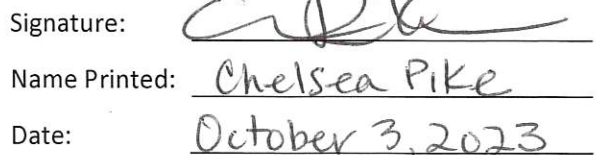 Signature:
Name Printed: Chelsea Pike
Date: October 3, 2023